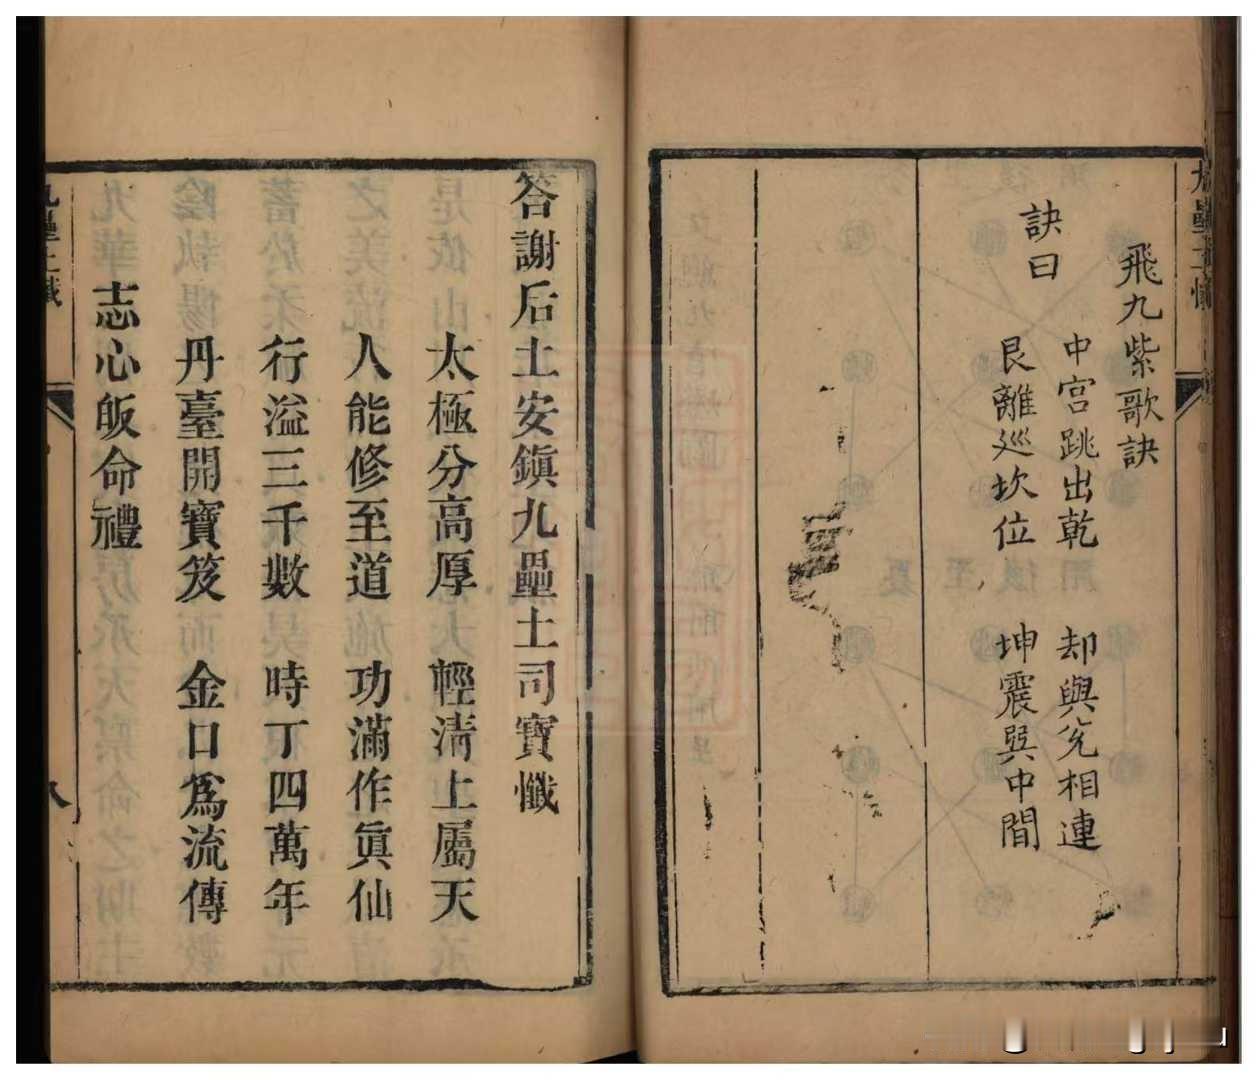 飛九紫歌訣
訣曰
中宮跳出乾 却與兌相連
艮離巡坎位 坤震巽中間
答謝后土安鎮九壘土司寶懺
太極分高厚 輕清上屬天
人能修至道 功滿作眞仙
行溢三千數 時丁四萬年
丹臺開寶笈 金口爲流傳
志心皈命禮